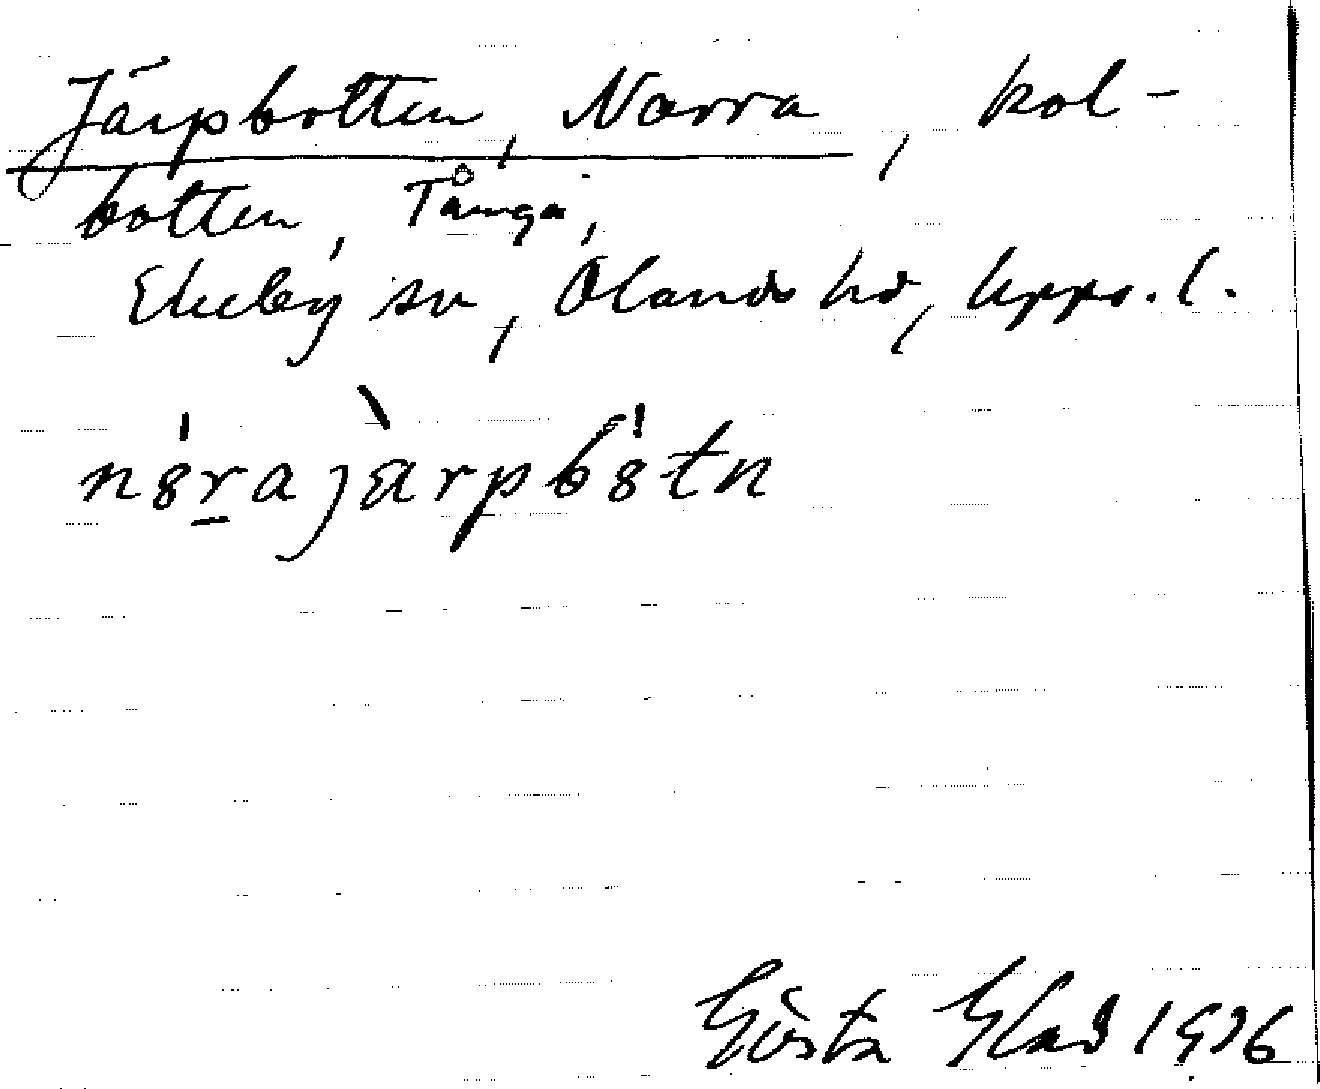 Järpbotten, Norra, kol-
botten, Tånga,
Ekeby sn, Olands hd, Upps. l.
n8rajärpb8tn
Gösta Glad 1936